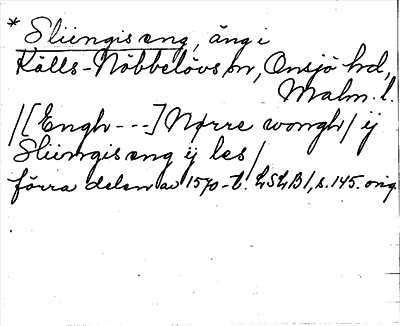 * Sliengis æng, äng i
Källs-Nöbbelövs sn, Onsjö hd,
Malm. l.
/[Engh ---] Nørre wongh/ ij
Sliengis æng ij les/
förra delen av 1570-t. LSLB1, s. 145. orig.